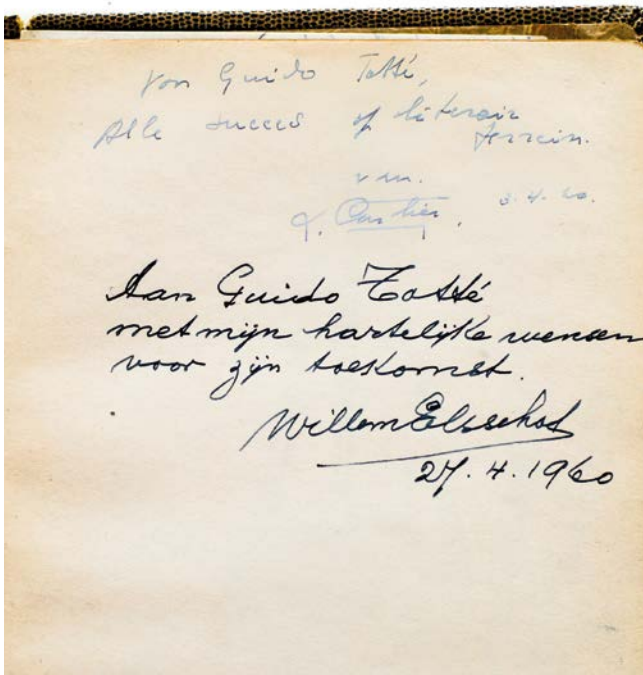 Voor Guido Totté,
Alle succes op literair
terrein.
van.
3.4.60.
Aan Guido Totté
met mijn hartelijke wensen
voor zijn toekomst.
Willem Elsschot
27.4.1960